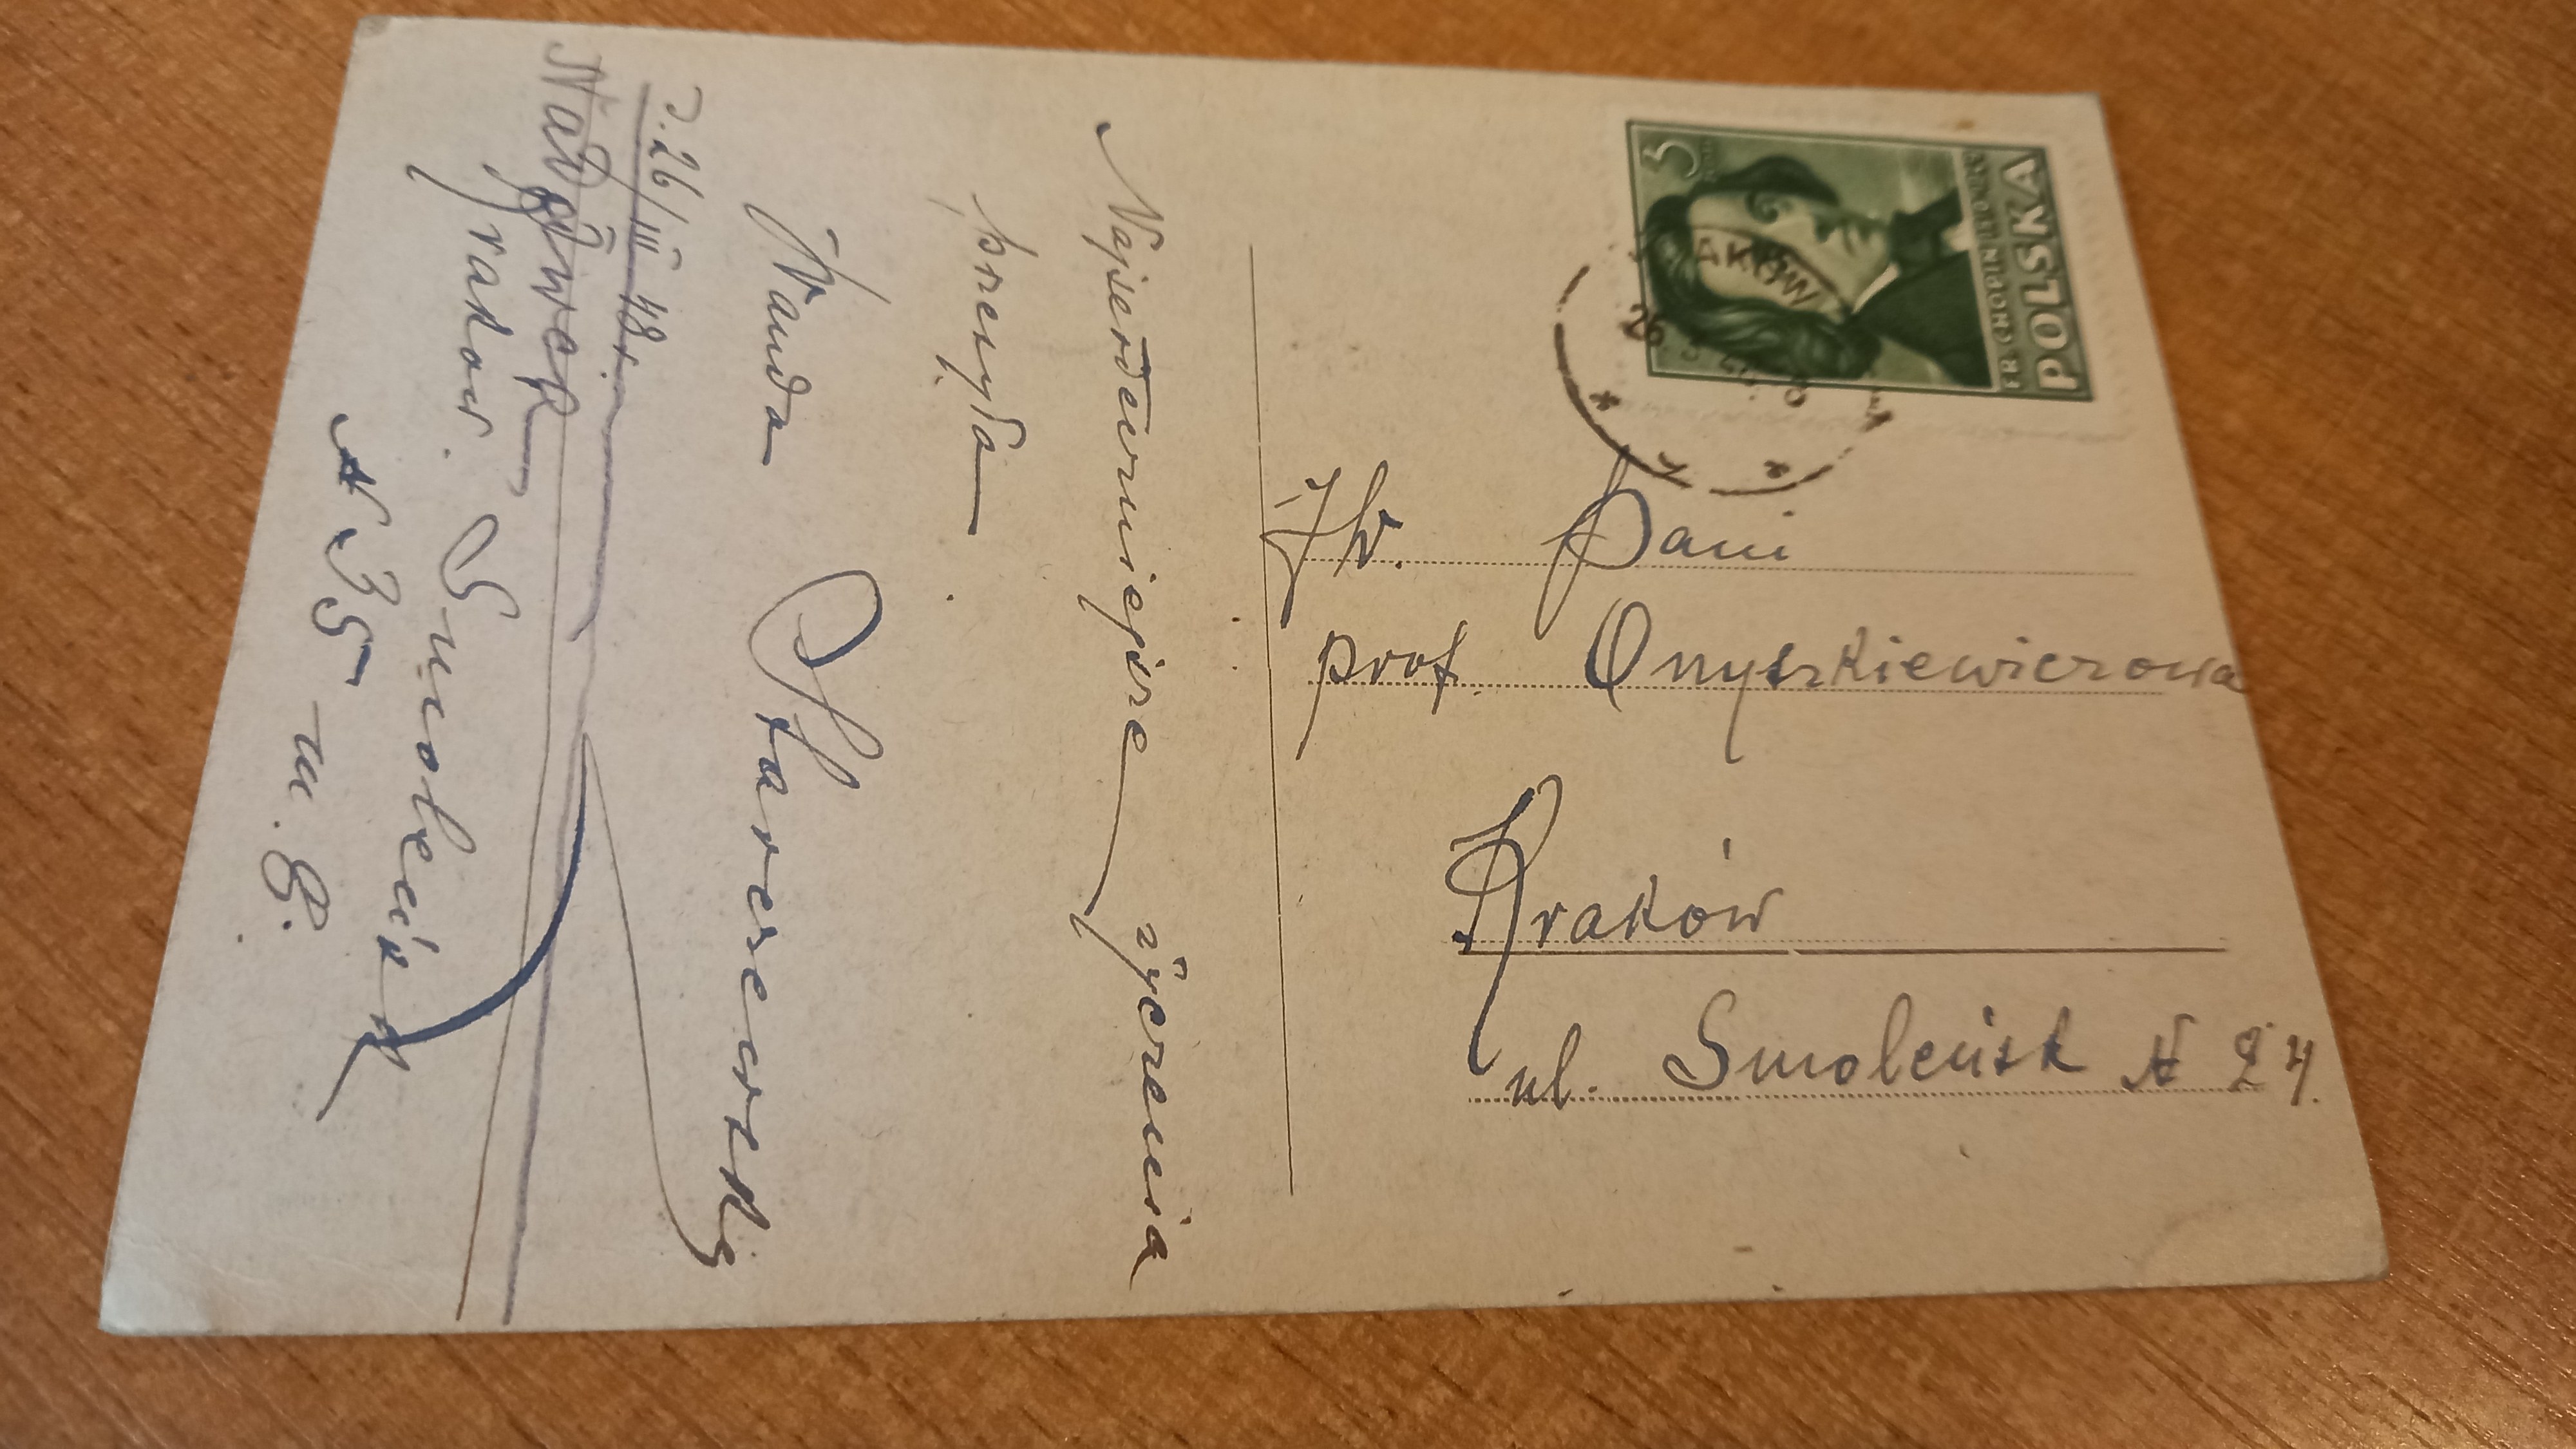 Najserdeczniejsze życzenia
przesyła
Wanda Starczewska
D. 26/III 48 r.
Nadawca
Kraków. Smoleńsk
N 35 m. 8.
POLSKA
FR. CHOPIN 1810-1849
5
26
Jw. Pani
prof. Onyszkiewiczowa
Kraków
ul. Smoleńsk N 24.